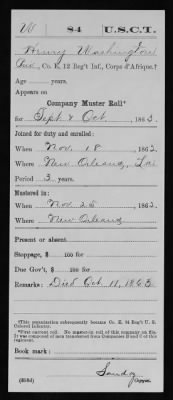 W 84 U.S.C.T.
Henry Washington
Co. E, 12 Reg't Inf., Corps d'Afrique.†
Age years.
Appears on
Company Muster Roll*
for Sept & Oct, 1863.
Joined for duty and enrolled:
When Nov. 18, 1862.
Where New Orleans, La.
Period 3 years.
Mustered in:
When Nov. 25, 1862.
Where New Orleans
Present or absent
Stoppage, $ 100 for
Due Gov't, $ 100 for
Remarks: Died Oct. 11, 1863.
†This organization subsequently became Co. E, 84 Reg't U. S.
Colored Infantry.
Book mark:
Copyist.